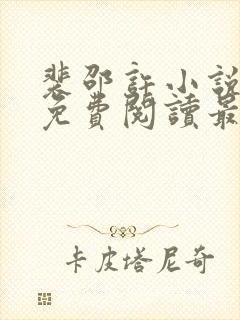 裴邵許小說
免費閱讀最
卡皮塔尼奇